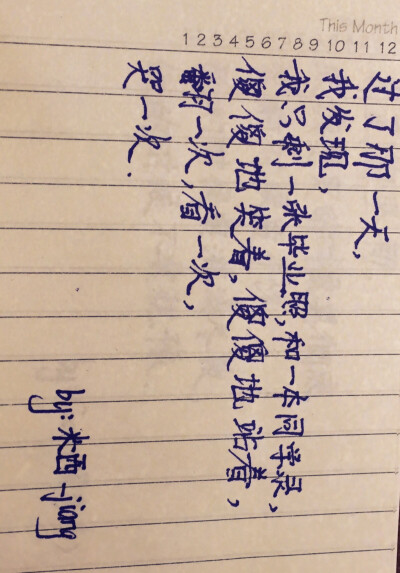 This Month
1 2 3 4 5 6 7 8 9 10 11 12
过了那一天,
我发现,
我只剩一张毕业照,和一本同学录,
傻傻地笑着,傻傻地站着,
翻一次,看一次,
哭一次.
by:米西-jiang